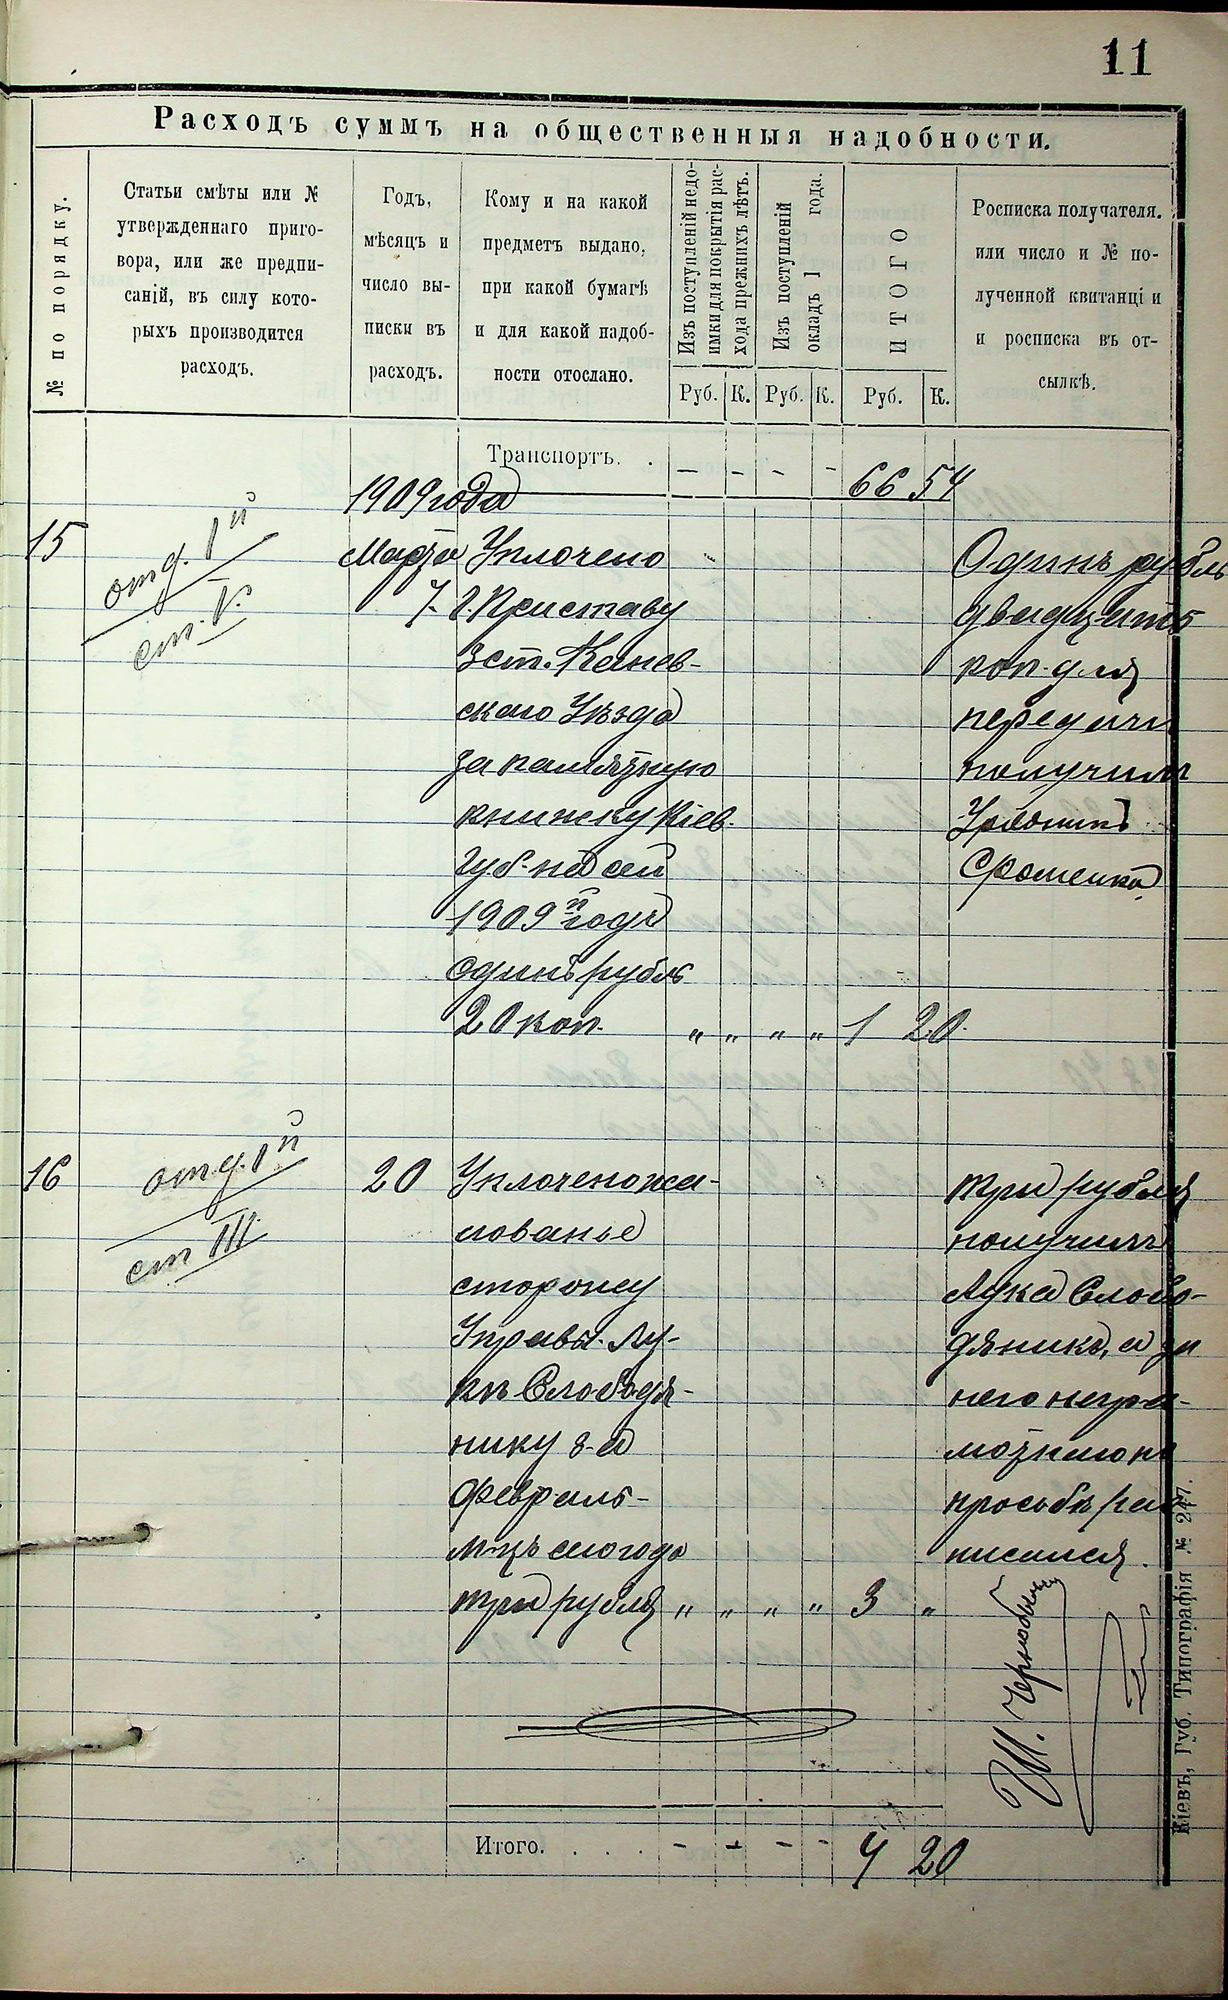 11
Расходъ суммъ на общественныя надобности.
№ по порядку.
Статьи смѣты или №
утвержденнаго приго-
вора, или же предпи-
саній, въ силу кото-
рыхъ производится
расходъ.
Годъ,
мѣсяцъ и
число вы-
писки въ
расходъ.
Кому и на какой
предметъ выдано,
при какой бумагѣ
и для какой надоб-
ности отослано.
Изъ поступленій недо-
имки для покрытія рас-
хода прежнихъ лѣтъ.
Изъ поступленій
окладъ 1 года.
ИТОГО
Росписка получателя.
или число и № по-
лученной квитанціи
и росписка въ от-
сылкѣ.
Руб. К. Руб. К. Руб. К.
Транспортъ. . - - - - 66 54
1909 года
15
отд. Iй
ст. V.
Марта
7.
Уплочено
г. Приставу
3 ст. Канев-
скаго Уѣзда
за памятную
книжку Кіев.
Губ. на сей
1909й годъ
одинъ рубль
20 коп. " " " " 1 20
Одинъ рубль
двадцать
коп. для
передачи
получилъ
Урядникъ
Фоменко
16
отд. Iй
ст III.
20
Уплочено жа-
лованье
сторожу
Управы Лу-
кѣ Слободя-
нику за
Февраль-
м-цъ сего года
три рубля " " " " 3 "
три рубля
получилъ
Лука Слобо-
дяникъ, а за
него негра-
мотнаго по
просьбѣ рас-
писался.
Итого. . . . - - - - 4 20
Кіевъ, Губ. Типографія № 247.